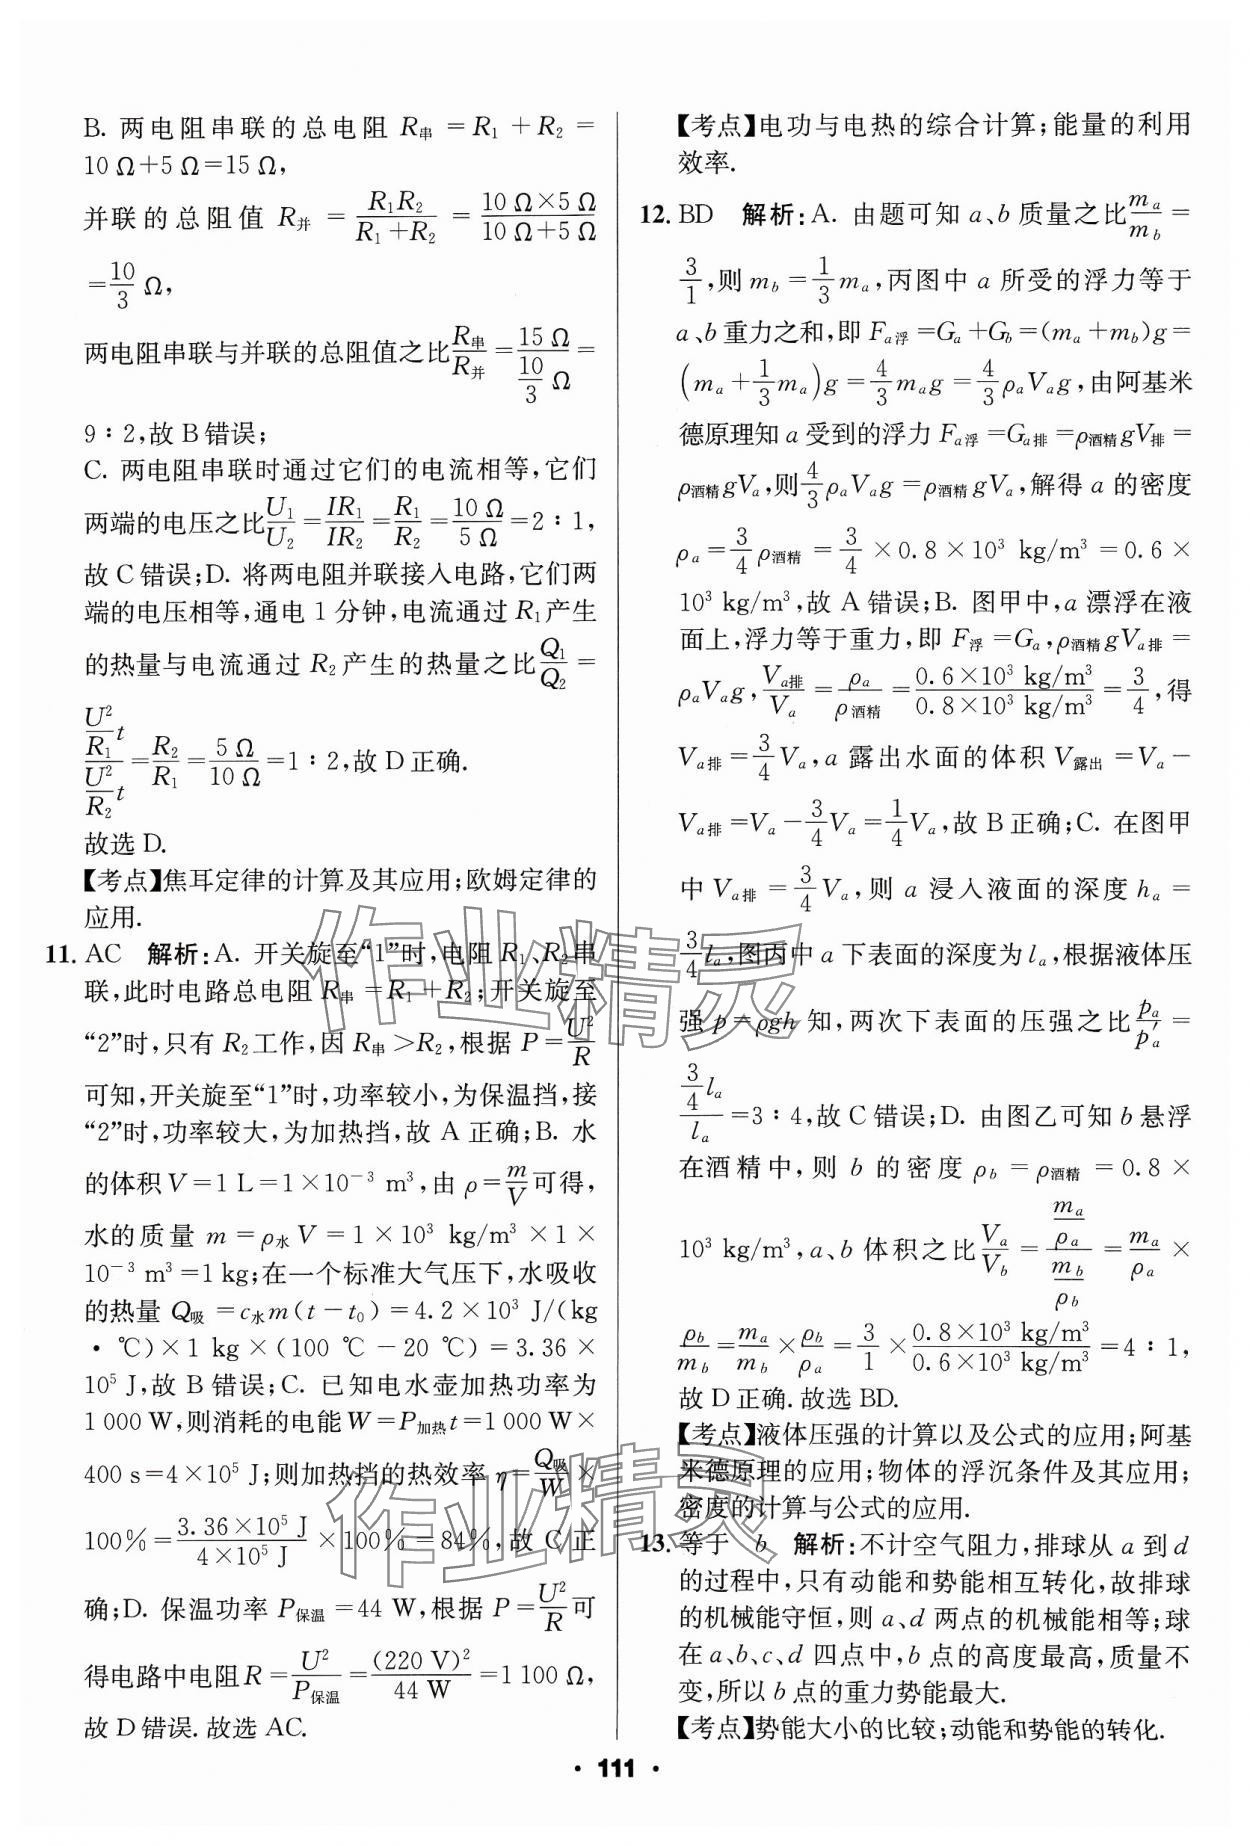 B. 两电阻串联的总电阻 R串 =R₁ +R₂ =
10 Ω+5 Ω=15 Ω,
并联的总阻值 R并 = R₁R₂/(R₁+R₂) = (10 Ω×5 Ω)/(10 Ω+5 Ω)
=10/3 Ω,
两电阻串联与并联的总阻值之比R串/R并=15 Ω/(10/3 Ω)=
9∶2,故 B 错误;
C. 两电阻串联时通过它们的电流相等,它们
两端的电压之比U₁/U₂=IR₁/IR₂=R₁/R₂=10 Ω/5 Ω=2∶1,
故 C 错误;D. 将两电阻并联接入电路,它们两
端的电压相等,通电 1 分钟,电流通过 R₁产生
的热量与电流通过 R₂产生的热量之比Q₁/Q₂=
(U²/R₁ t)/(U²/R₂ t)=R₂/R₁=5 Ω/10 Ω=1∶2,故 D 正确.
故选 D.
【考点】焦耳定律的计算及其应用;欧姆定律的
应用.
11. AC 解析:A. 开关旋至“1”时,电阻 R₁、R₂串
联,此时电路总电阻 R串 =R₁+R₂;开关旋至
“2”时,只有 R₂工作,因 R串>R₂,根据 P=U²/R
可知,开关旋至“1”时,功率较小,为保温挡,接
“2”时,功率较大,为加热挡,故 A 正确;B. 水
的体积 V=1 L=1×10⁻³ m³,由 ρ=m/V可得,
水的质量 m=ρ水V=1×10³ kg/m³×1×
10⁻³ m³=1 kg;在一个标准大气压下,水吸收
的热量 Q吸 =c水m(t-t₀)=4.2×10³ J/(kg
·℃)×1 kg×(100 ℃-20 ℃)=3.36×
10⁵ J,故 B 错误;C. 已知电水壶加热功率为
1 000 W,则消耗的电能 W=P加热t=1 000 W×
400 s=4×10⁵ J;则加热挡的热效率 η=Q吸/W×
100%=(3.36×10⁵ J)/(4×10⁵ J)×100%=84%,故 C 正
确;D. 保温功率 P保温=44 W,根据 P=U²/R可
得电路中电阻 R=U²/P保温=(220 V)²/44 W=1 100 Ω,
故 D 错误. 故选 AC.
【考点】电功与电热的综合计算;能量的利用
效率.
12. BD 解析:A. 由题可知 a、b 质量之比mₐ/m_b=
3/1,则 m_b=1/3 mₐ,丙图中 a 所受的浮力等于
a、b 重力之和,即 Fₐ浮=Gₐ+G_b=(mₐ+m_b)g=
(mₐ+1/3 mₐ)g=4/3 mₐg=4/3 ρₐVₐg,由阿基米
德原理知 a 受到的浮力 Fₐ浮=Gₐ排=ρ酒精gV排=
ρ酒精gVₐ,则4/3 ρₐVₐg=ρ酒精gVₐ,解得 a 的密度
ρₐ=3/4 ρ酒精=3/4×0.8×10³ kg/m³=0.6×
10³ kg/m³,故 A 错误;B. 图甲中,a 漂浮在液
面上,浮力等于重力,即 F浮=Gₐ,ρ酒精gVₐ排=
ρₐVₐg,Vₐ排/Vₐ=ρₐ/ρ酒精=(0.6×10³ kg/m³)/(0.8×10³ kg/m³)=3/4,得
Vₐ排=3/4 Vₐ,a 露出水面的体积 V露出=Vₐ-
Vₐ排=Vₐ-3/4 Vₐ=1/4 Vₐ,故 B 正确;C. 在图甲
中 Vₐ排=3/4 Vₐ,则 a 浸入液面的深度 hₐ=
3/4 lₐ,图丙中 a 下表面的深度为 lₐ,根据液体压
强 p=ρgh 知,两次下表面的压强之比pₐ/p′ₐ=
(3/4 lₐ)/lₐ=3∶4,故 C 错误;D. 由图乙可知 b 悬浮
在酒精中,则 b 的密度 ρ_b=ρ酒精=0.8×
10³ kg/m³,a、b 体积之比Vₐ/V_b=(mₐ/ρₐ)/(m_b/ρ_b)=mₐ/ρₐ×
ρ_b/m_b=mₐ/m_b×ρ_b/ρₐ=3/1×(0.8×10³ kg/m³)/(0.6×10³ kg/m³)=4∶1,
故 D 正确. 故选 BD.
【考点】液体压强的计算以及公式的应用;阿基
米德原理的应用;物体的浮沉条件及其应用;
密度的计算与公式的应用.
13. 等于 b 解析:不计空气阻力,排球从 a 到 d
的过程中,只有动能和势能相互转化,故排球
的机械能守恒,则 a、d 两点的机械能相等;球
在 a、b、c、d 四点中,b 点的高度最高,质量不
变,所以 b 点的重力势能最大.
【考点】势能大小的比较;动能和势能的转化.
作业精灵
作业精灵
· 111 ·